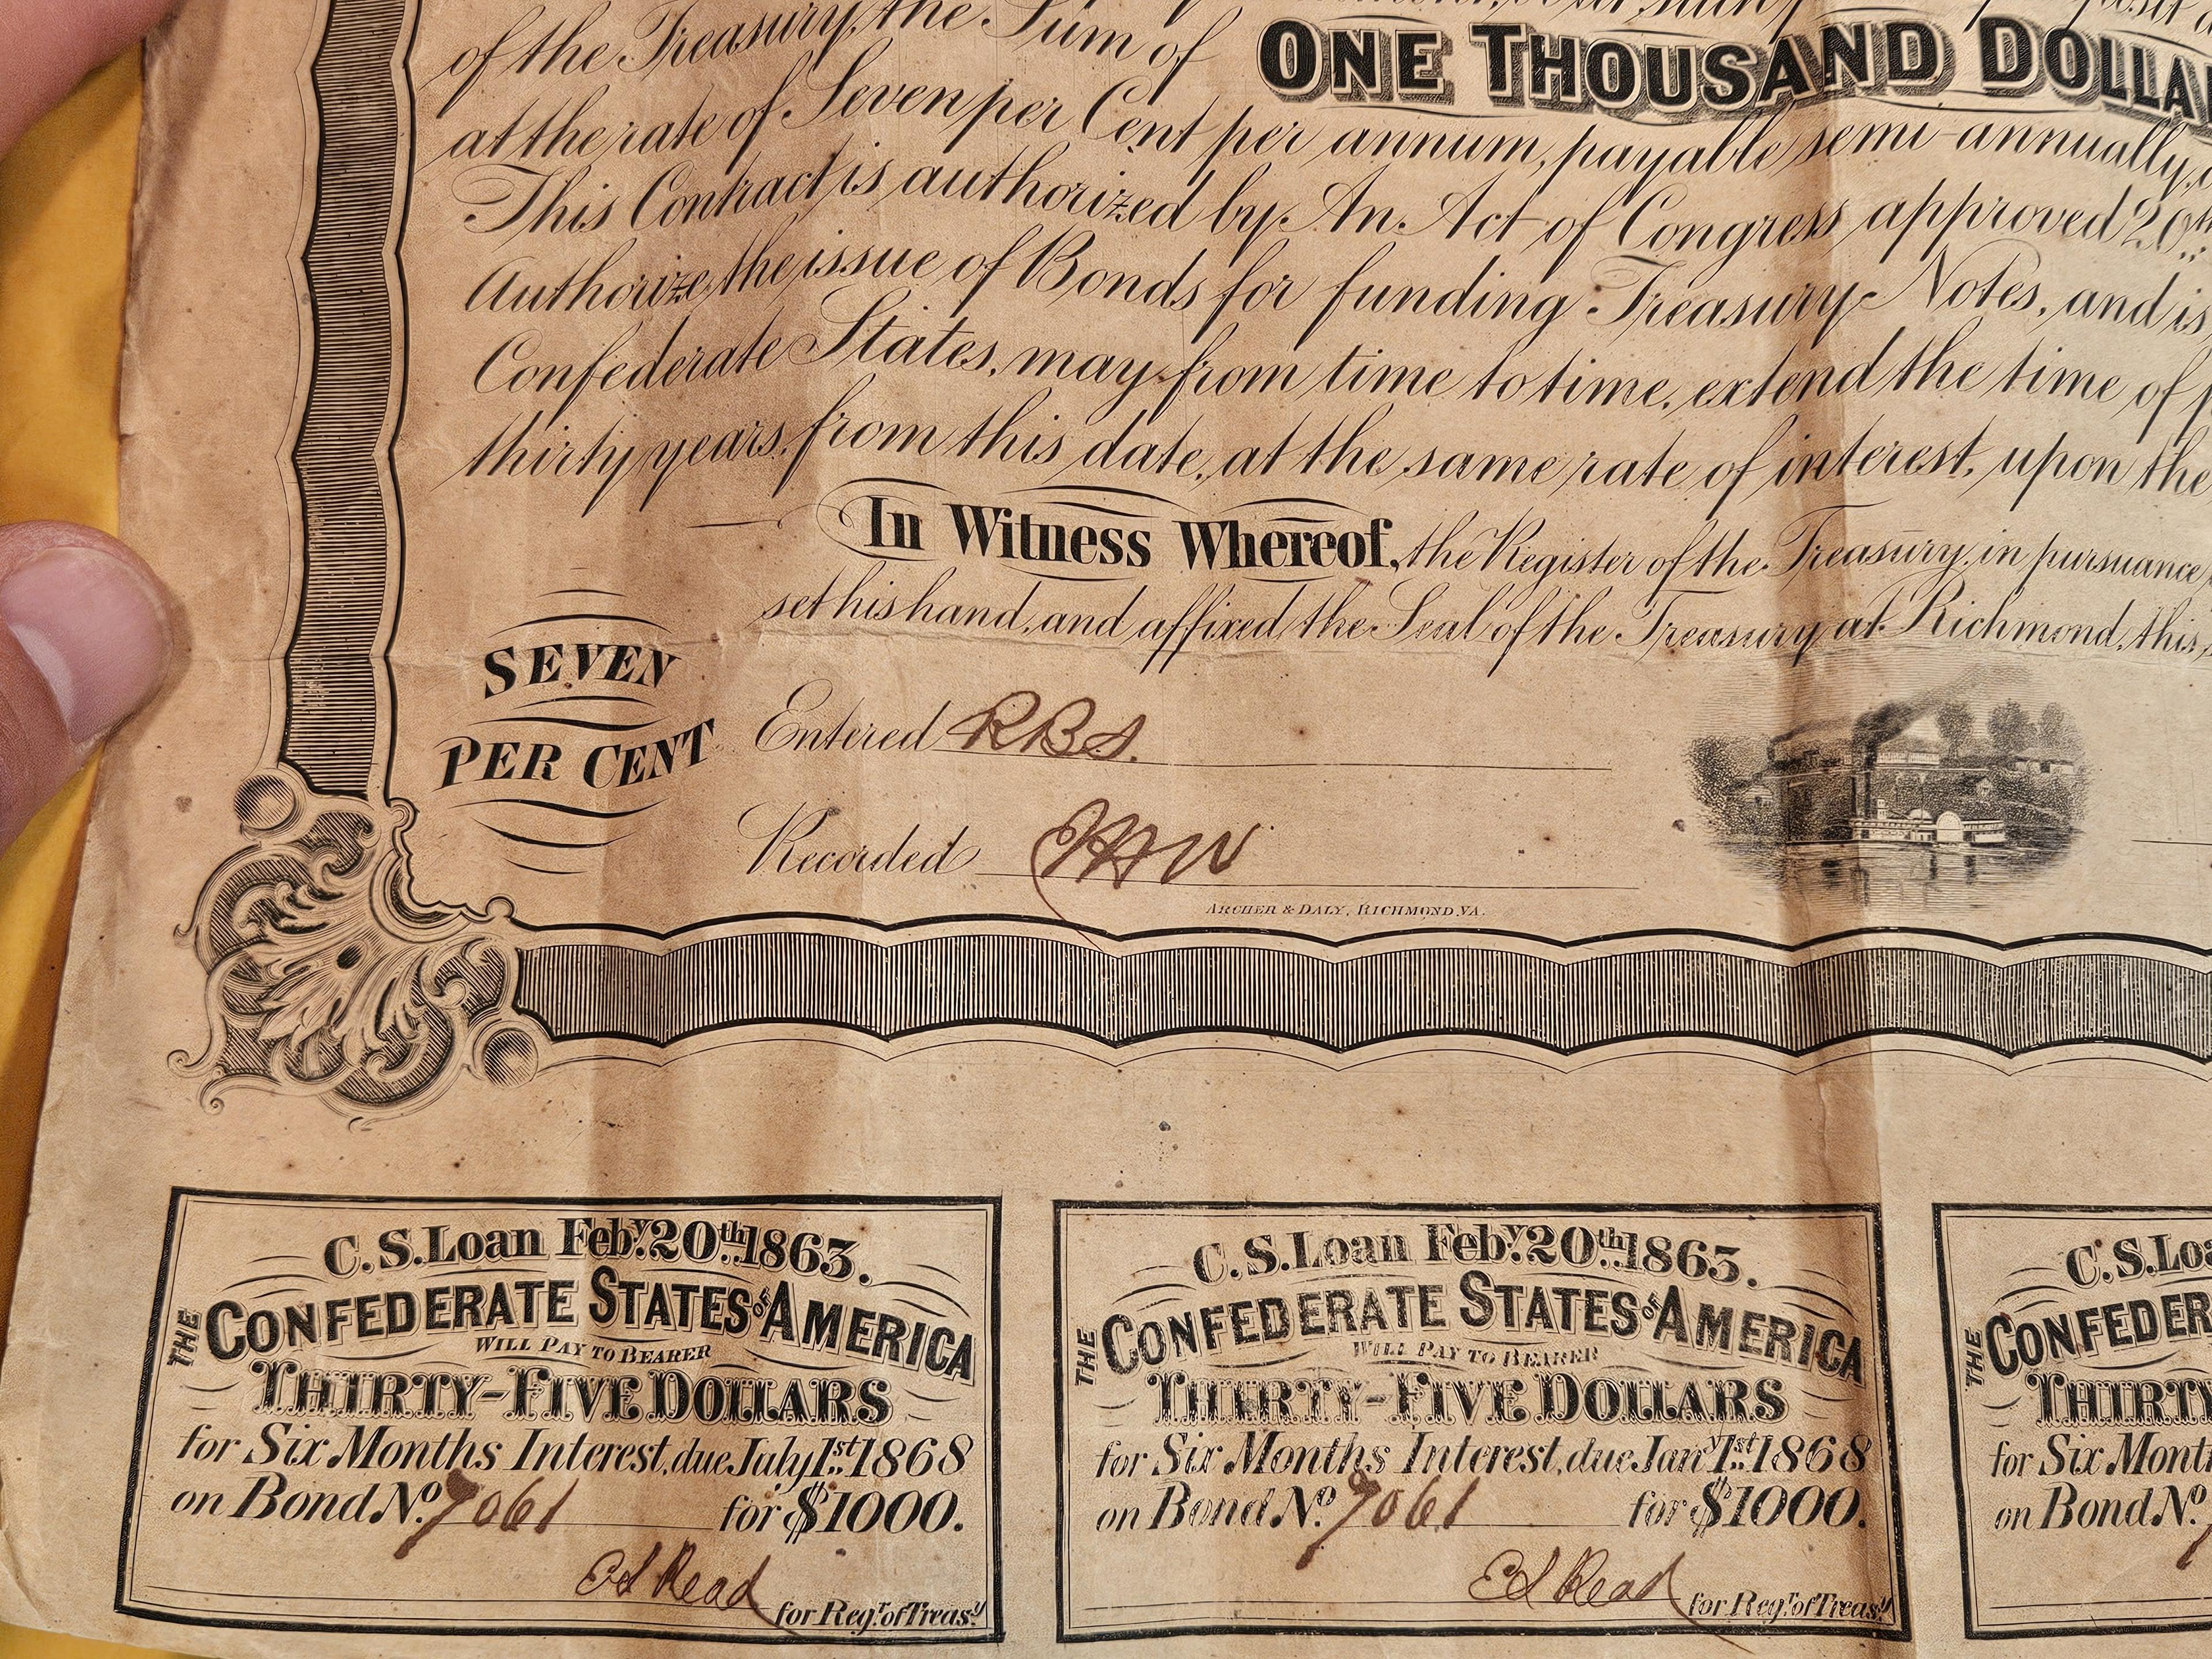 of the Treasury, the Sum of ONE THOUSAND
at the rate of Seven per Cent per annum, payable semi-annually,
This Contract is authorized by An Act of Congress approved 20th
Authorize the issue of Bonds for funding Treasury Notes, and is
Confederate States, may from time to time, extend the time of
thirty years, from this date, at the same rate of interest, upon the
In Witness Whereof, the Register of the Treasury, in pursuance
set his hand, and affixed the Seal of the Treasury at Richmond, this
SEVEN
PER CENT
Entered RBS.
Recorded
ARCHER & DALY, RICHMOND, VA.
C. S. Loan Feby. 20th. 1863.
THE CONFEDERATE STATES OF AMERICA
WILL PAY TO BEARER
THIRTY-FIVE DOLLARS
for Six Months Interest, due July 1st. 1868
on Bond No. 7061 for $1000.
Ed Read for Regr. of Treasy.
C. S. Loan Feby. 20th. 1863.
THE CONFEDERATE STATES OF AMERICA
WILL PAY TO BEARER
THIRTY-FIVE DOLLARS
for Six Months Interest, due Jany. 1st. 1868
on Bond No. 7061 for $1000.
Ed Read for Regr. of Treasy.
C. S.
THE
THIRTY
for Six
on Bond No.